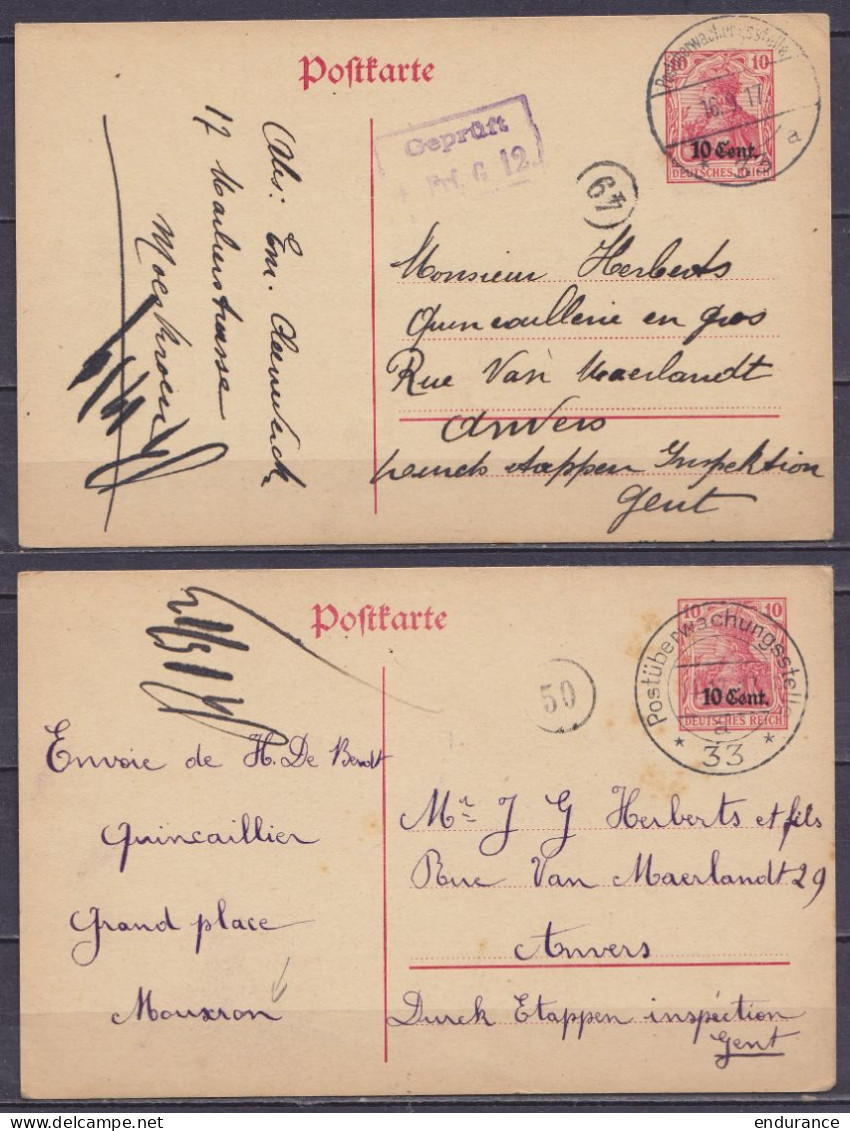 Postkarte
Postüberwachungsstelle
16.9.17
a
* 33 *
10 10
10 Cent.
DEUTSCHES REICH
Geprüft
Prf. G. 12.
67
Abs: Em.
17 Marlierstrasse
Moeskroen
Monsieur Herberts
Quincaillerie en gros
Rue Van Maerlandt
Anvers
Etappen Inspektion
Gent
Postkarte
10 10
Postüberwachungsstelle
10 Cent.
DEUTSCHES REICH
a
* 33 *
50
Envoie de H. De Bendt
Quincaillier
Grand place
Mouxron
Mr J G Herberts et fils
Rue Van Maerlandt 29
Anvers
Durch Etappen inspéction
Gent
www.delcampe.net
endurance